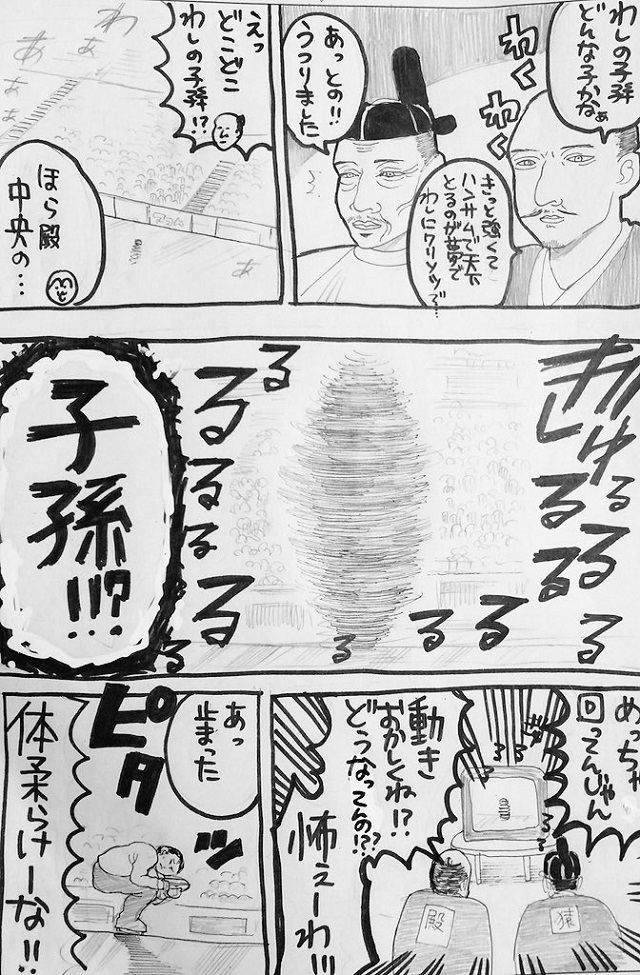 わしの子孫
どんな子かなぁ
わくわく
きっと強くて
ハンサムで天下
とるのが夢で
わしにクリソツで…
あっとの!!
うつりました
えっ
どこどこ
わしの子孫!?
わ
あ
ぁ
あ
ぁ
ぁ
ぁ
ほら殿
中央の…
ぎゅるるるるるるるるるるるるるる
子孫!!!?
めっちゃ
回ってんじゃん
動き
おかしくね!?
どうなってんの!??
怖ぇーわ!!!
る
る
猿
殿
あっ
止まった
ピタッ
体柔らけーな!!